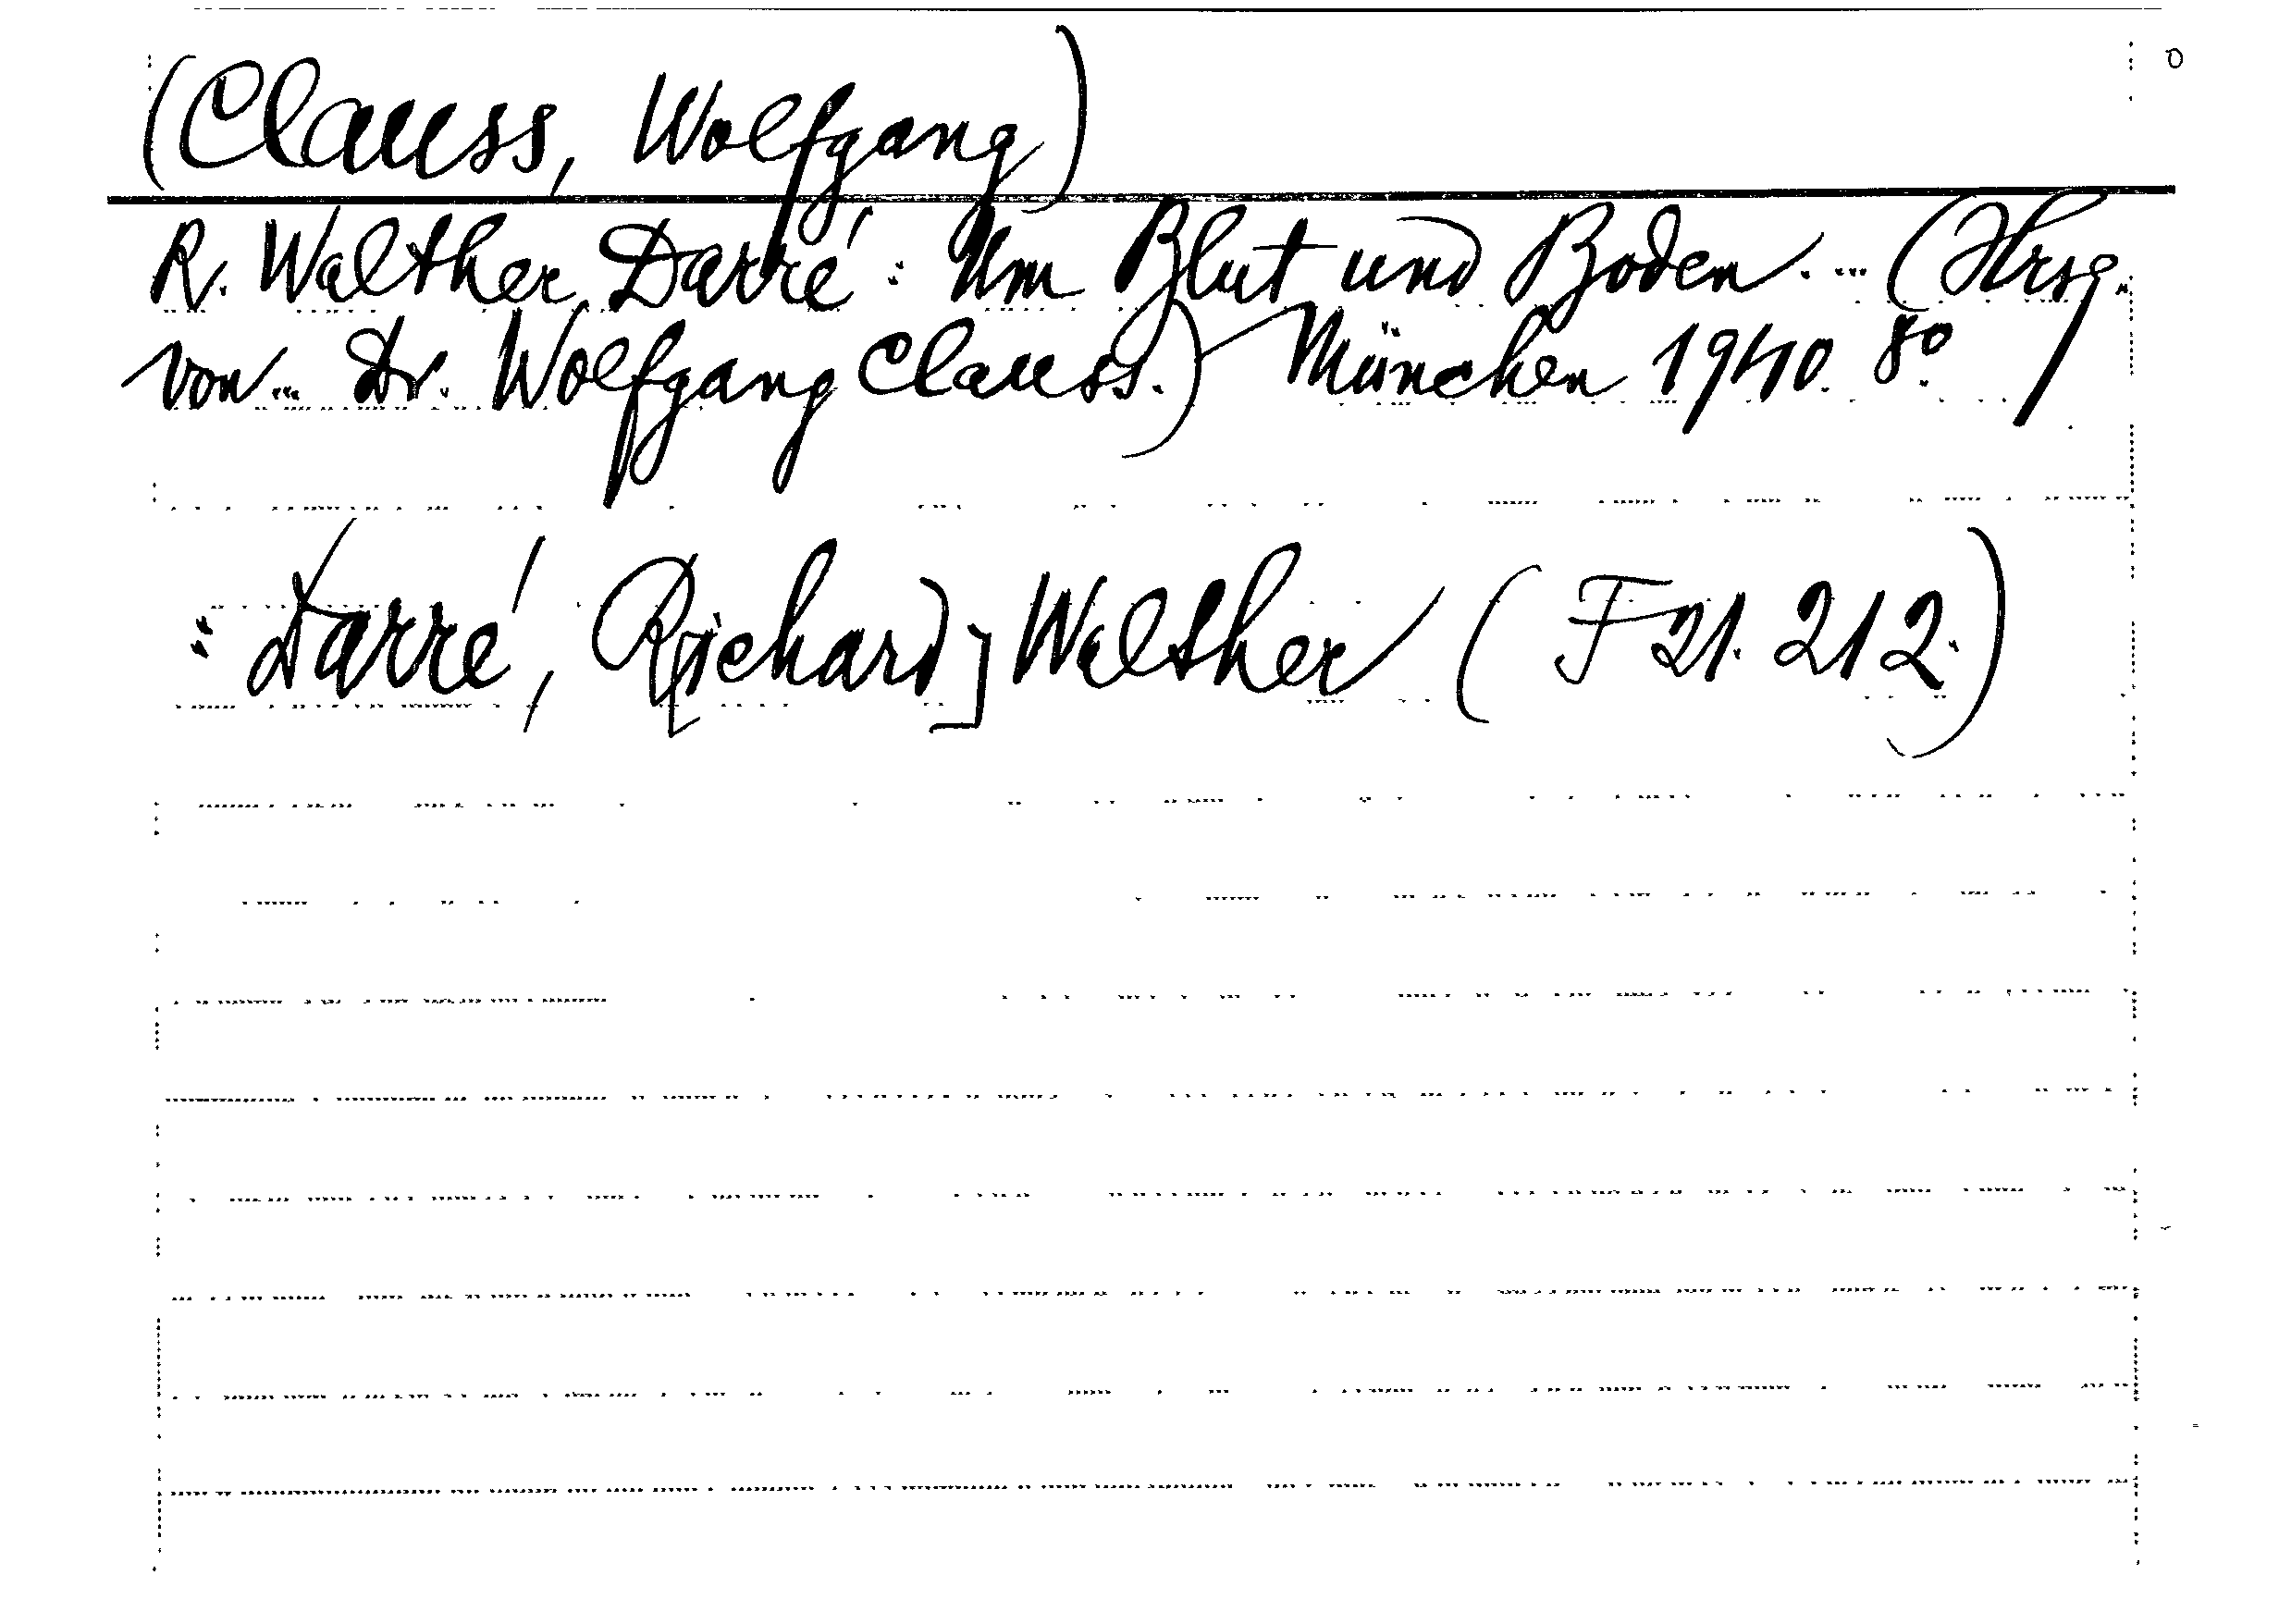 (Clauss, Wolfgang)
R. Walther Darré: Um Blut und Boden. ... (Hrsg.
von ... Dr. Wolfgang Clauss.) München 1940. 8°.
: Darré, R[ichard] Walther (F 21. 212.)